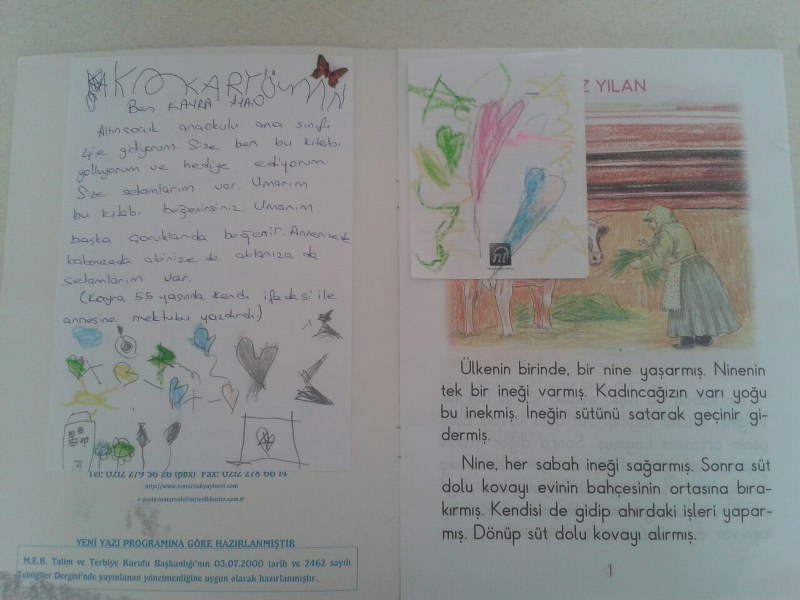 Ben KAYRA HAN
Altınçocuk anaokulu ana sınıfı
gidiyorum. Size ben bu kitabı
yolluyorum ve hediye ediyorum.
Size selamlarım var. Umarım
bu kitabı beğenirsiniz. Umarım
başka çocuklarda beğenir. Annenizede
babanızada abinize de ablanıza da
selamlarım var.
(Kayra 5.5 yaşında kendi ifadesi ile
annesine mektubu yazdırdı)
Tel: 0212 279 56 26 (pbx) Fax: 0212 278 66 14
YENİ YAZI PROGRAMINA GÖRE HAZIRLANMIŞTIR
M.E.B. Talim ve Terbiye Kurulu Başkanlığı'nın 03.07.2000 tarih ve 2462 sayılı
Tebliğler Dergisi'nde yayınlanan yönetmenliğine uygun olarak hazırlanmıştır.
Z YILAN
Ülkenin birinde, bir nine yaşarmış. Ninenin
tek bir ineği varmış. Kadıncağızın varı yoğu
bu inekmiş. İneğin sütünü satarak geçinir gi-
dermiş.
Nine, her sabah ineği sağarmış. Sonra süt
dolu kovayı evinin bahçesinin ortasına bıra-
kırmış. Kendisi de gidip ahırdaki işleri yapar-
mış. Dönüp süt dolu kovayı alırmış.
1